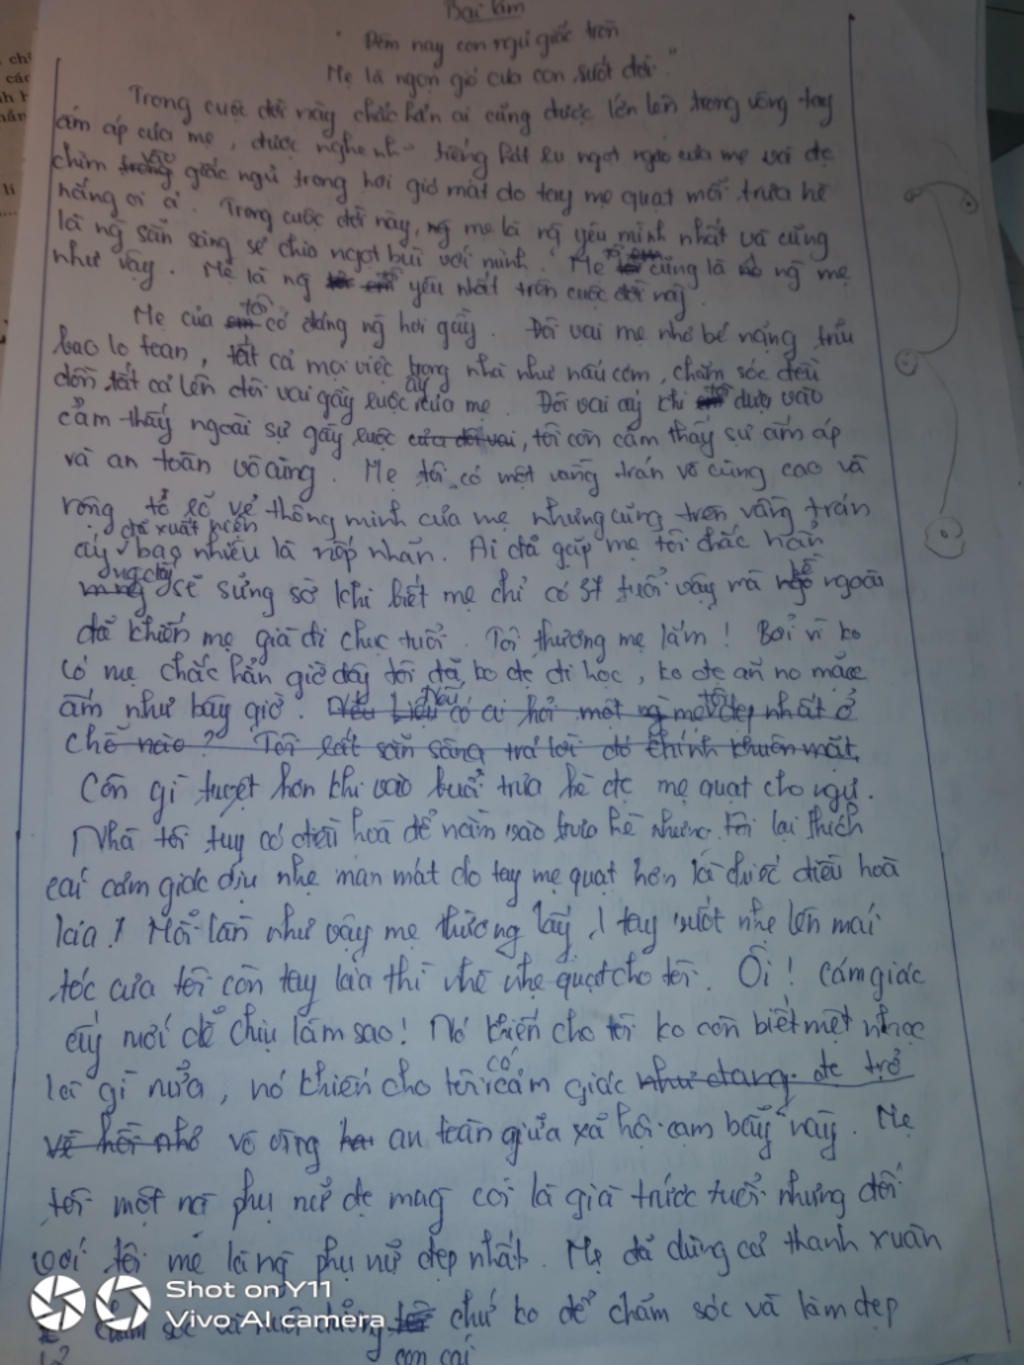 Bài làm
" Đêm nay con ngủ giấc tròn
Mẹ là ngọn gió của con suốt đời."
Trong cuộc đời này chắc hẳn ai cũng được lớn lên trong vòng tay
ấm áp của mẹ, được nghe tiếng hát ru ngọt ngào của mẹ và đc
chìm vào giấc ngủ trong hơi gió mát do tay mẹ quạt mỗi trưa hè
nắng oi ả. Trong cuộc đời này, ng mẹ là ng yêu mình nhất và cũng
là ng sẵn sàng sẻ chia ngọt bùi với mình. Mẹ tôi cũng là ng mẹ
như vậy. Mẹ là ng tôi yêu nhất trên cuộc đời này.
Mẹ của tôi có dáng ng hơi gầy. Đôi vai mẹ nhỏ bé nặng trĩu
bao lo toan, tất cả mọi việc trong nhà như nấu cơm, chăm sóc đều
dồn tất cả lên đôi vai gầy guộc ấy của mẹ. Đôi vai ấy khi tôi dựa vào
cảm thấy ngoài sự gầy guộc của đôi vai, tôi còn cảm thấy sự ấm áp
và an toàn vô cùng. Mẹ tôi có một vầng trán vô cùng cao và
rộng tỏ rõ vẻ thông minh của mẹ nhưng cũng trên vầng trán
ấy đã xuất hiện bao nhiêu là nếp nhăn. Ai đã gặp mẹ tôi chắc hẳn
sẽ sửng sờ khi biết mẹ chỉ có 37 tuổi vậy mà bề ngoài
đã khiến mẹ già đi chục tuổi. Tôi thương mẹ lắm! Bởi vì ko
có mẹ chắc hẳn giờ đây tôi đã ko đc đi học, ko đc ăn no mặc
ấm như bây giờ. Nếu có ai hỏi một ng mẹ đẹp nhất ở
chỗ nào? Tôi rất sẵn sàng trả lời đó chính khuôn mặt.
Còn gì tuyệt hơn khi vào buổi trưa hè đc mẹ quạt cho ngủ.
Nhà tôi tuy có điều hoà để nằm vào trưa hè nhưng tôi lại thích
cái cảm giác dịu nhẹ man mát do tay mẹ quạt hơn là dưới điều hoà
kia! Mỗi lần như vậy mẹ thường lấy 1 tay vuốt nhẹ lên mái
tóc của tôi còn tay kia thì nhè nhẹ quạt cho tôi. Ôi! Cảm giác
ấy mới dễ chịu làm sao! Nó khiến cho tôi ko còn biết mệt nhọc
là gì nữa, nó khiến cho tôi có cảm giác như đang đc trở
về hồi nhỏ vô cùng an toàn giữa xã hội cạm bẫy này. Mẹ
tôi một ng phụ nữ đc mng coi là già trước tuổi nhưng đối
với tôi mẹ là ng phụ nữ đẹp nhất. Mẹ đã dùng cả thanh xuân
chăm sóc và chồng con cái chứ ko để chăm sóc và làm đẹp
Shot on Y11
Vivo AI camera